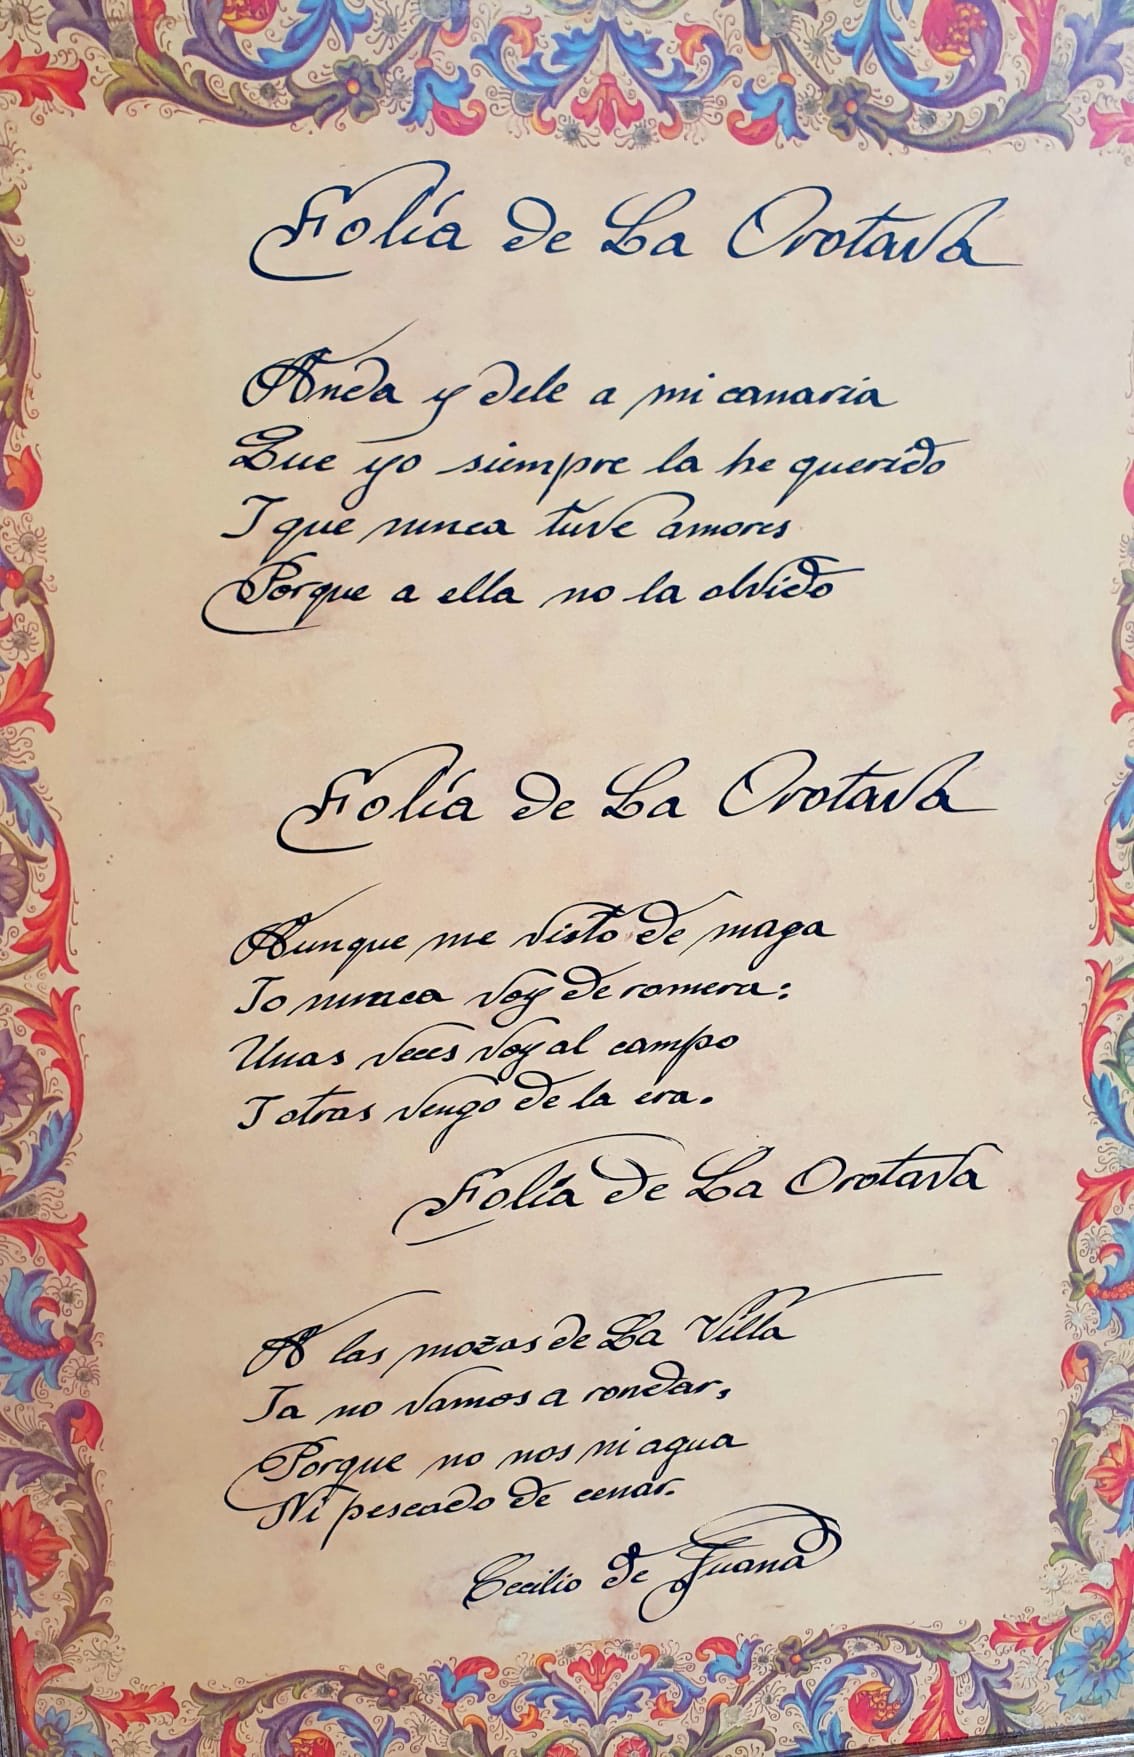 Folía de La Orotava
Anda y dele a mi canaria
Que yo siempre la he querido
Y que nunca tuve amores
Porque a ella no la olvido
Folía de La Orotava
Aunque me visto de maga
Yo nunca voy de romera:
Unas veces voy al campo
Y otras vengo de la era.
Folía de La Orotava
A las mozas de La Villa
Ya no vamos a rondar,
Porque no nos ni agua
Ni pescado de cenar.
Cecilio de Juana